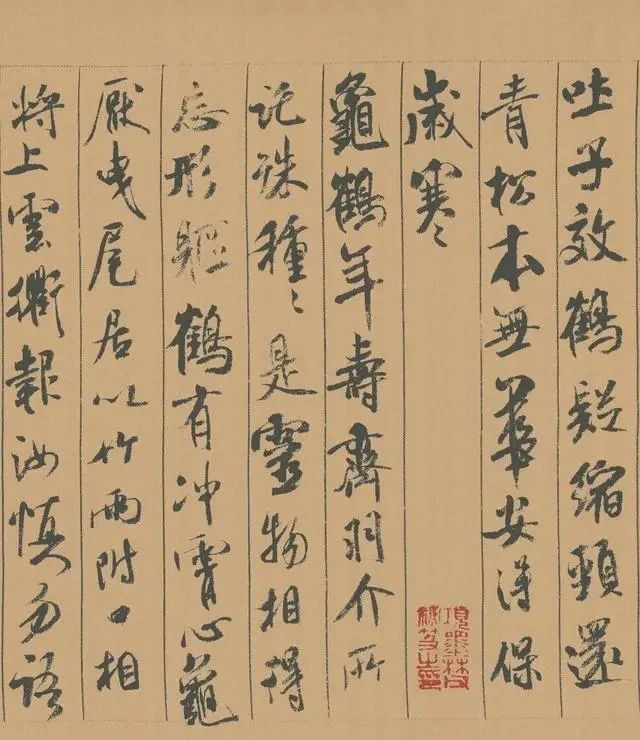 吐子效鶴疑縮頸還
青松本無華安得保
歲寒〻
龜鶴年壽齊羽介所
託殊種〻是靈物相得
忘形軀鶴有冲霄心龜
厭曳尾居以竹兩附口相
將上雲衢報汝慎勿語